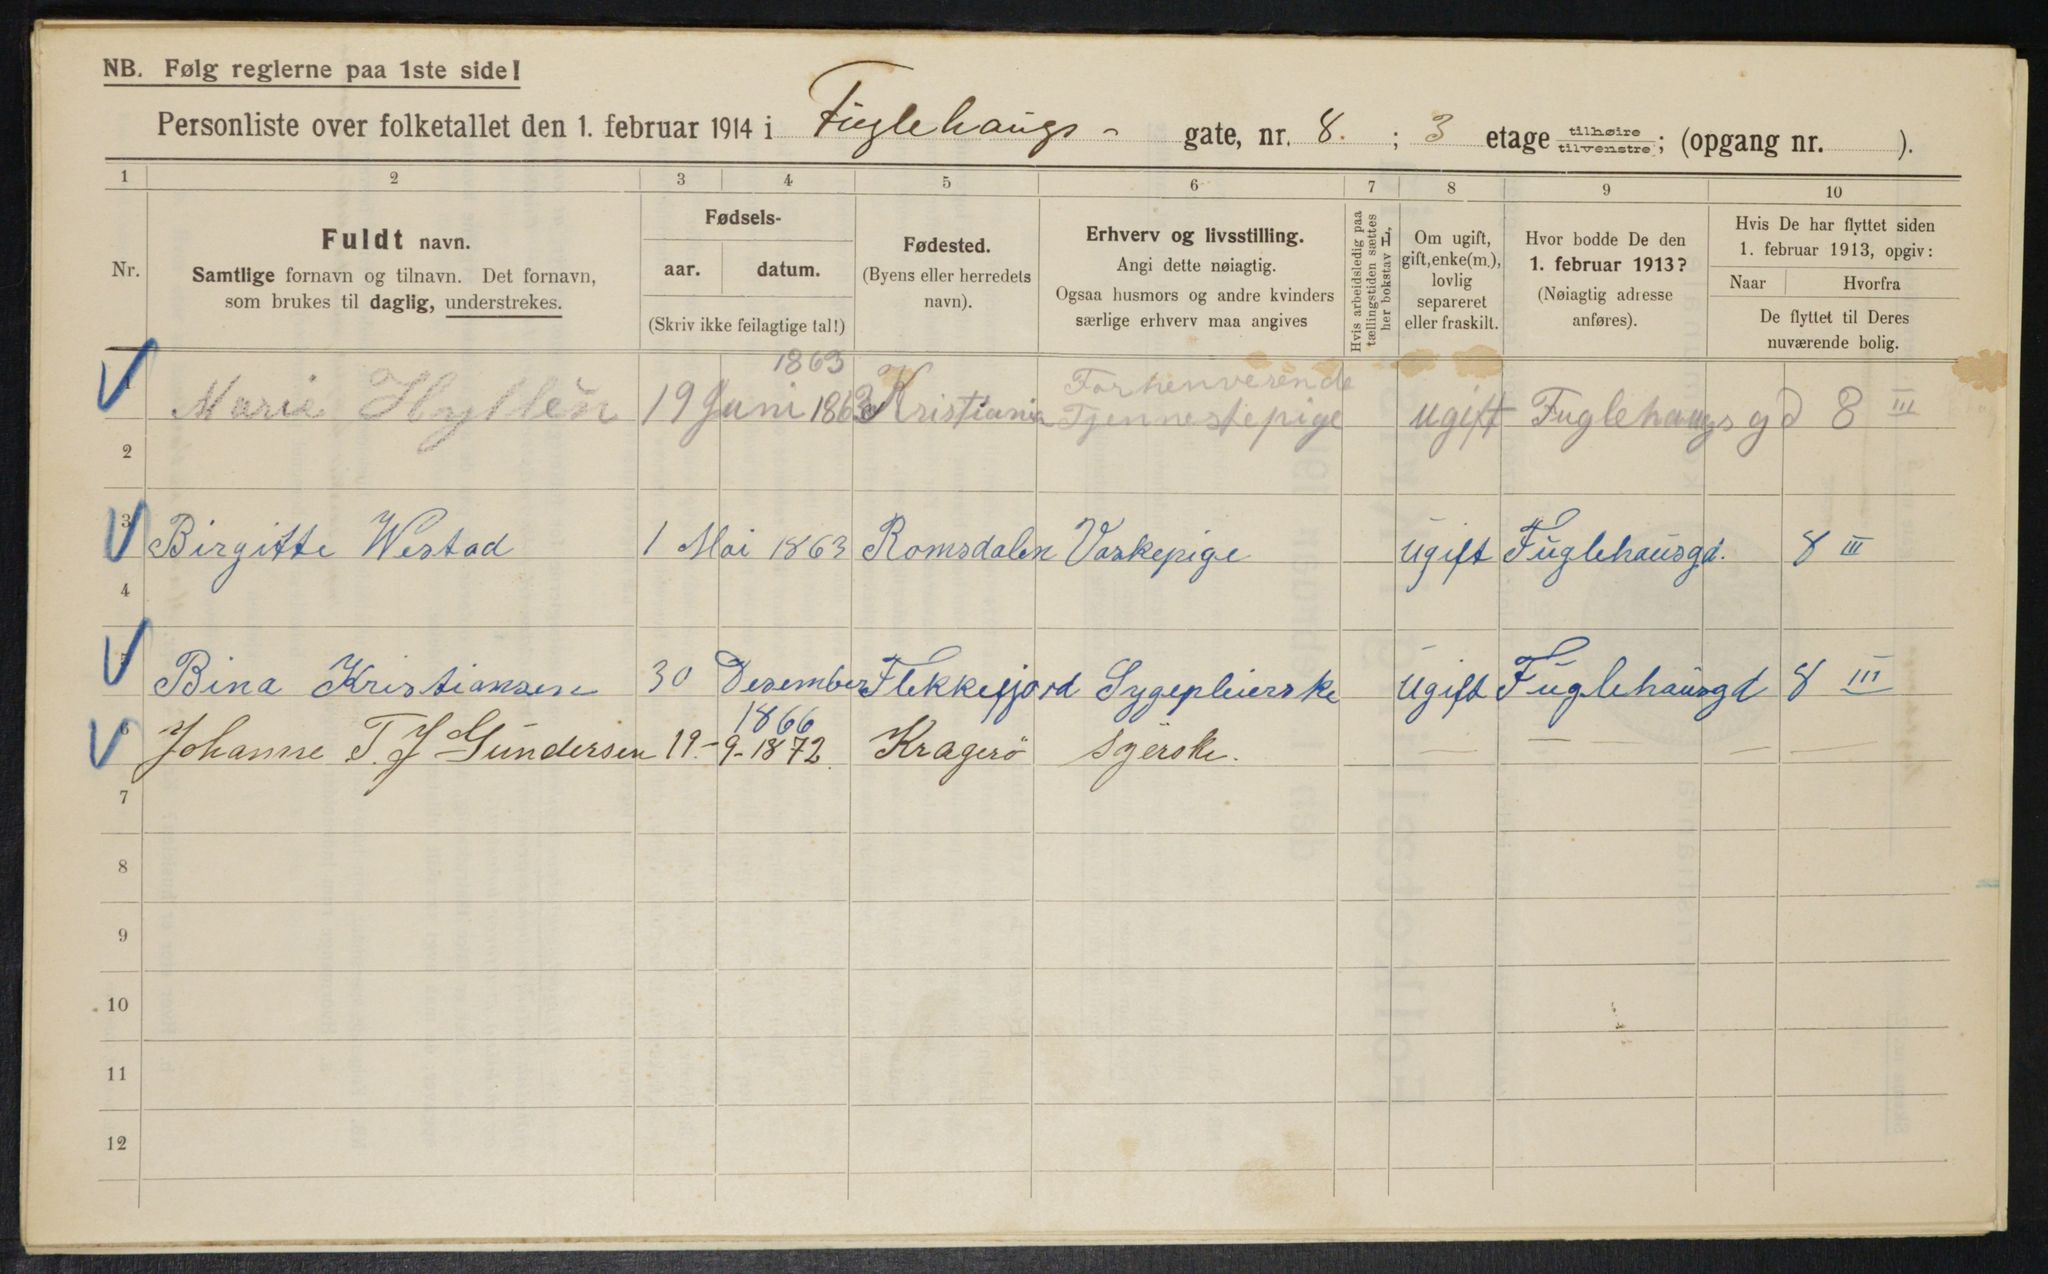 NB. Følg reglerne paa 1ste side!
Personliste over folketallet den 1. februar 1914 i Fuglehaugs- gate, nr. 8. ; 3 etage tilhøire tilvenstre; (opgang nr. ).
1 2 3 4 5 6 7 8 9 10
Nr.
Fuldt navn.
Samtlige fornavn og tilnavn. Det fornavn,
som brukes til daglig, understrekes.
Fødsels-
aar. datum.
(Skriv ikke feilagtige tal!)
Fødested.
(Byens eller herredets
navn).
Erhverv og livsstilling.
Angi dette nøiagtig.
Ogsaa husmors og andre kvinders
særlige erhverv maa angives
Hvis arbeidsledig paa
tællingstiden sættes
her bokstav L.
Om ugift,
gift, enke(m.),
lovlig
separeret
eller fraskilt.
Hvor bodde De den
1. februar 1913?
(Nøiagtig adresse
anføres).
Hvis De har flyttet siden
1. februar 1913, opgiv:
Naar Hvorfra
De flyttet til Deres
nuværende bolig.
1863 Forhenverende
1 Marie Hyllèn 19 Juni 1863 Kristiania Tjennestepige ugift Fuglehaugsgd 8 III
2
3 Birgitte Westad 1 Mai 1863 Romsdalen Vaskepige ugift Fuglehausgd. 8 III
4
5 Bina Kristiansen 30 Desember Flekkefjord Sygepleierske ugift Fuglehausgd 8 III
1866
6 Johanne T. J Gundersen 19.-9-1872. Kragerö syerske. — — — —
7
8
9
10
11
12